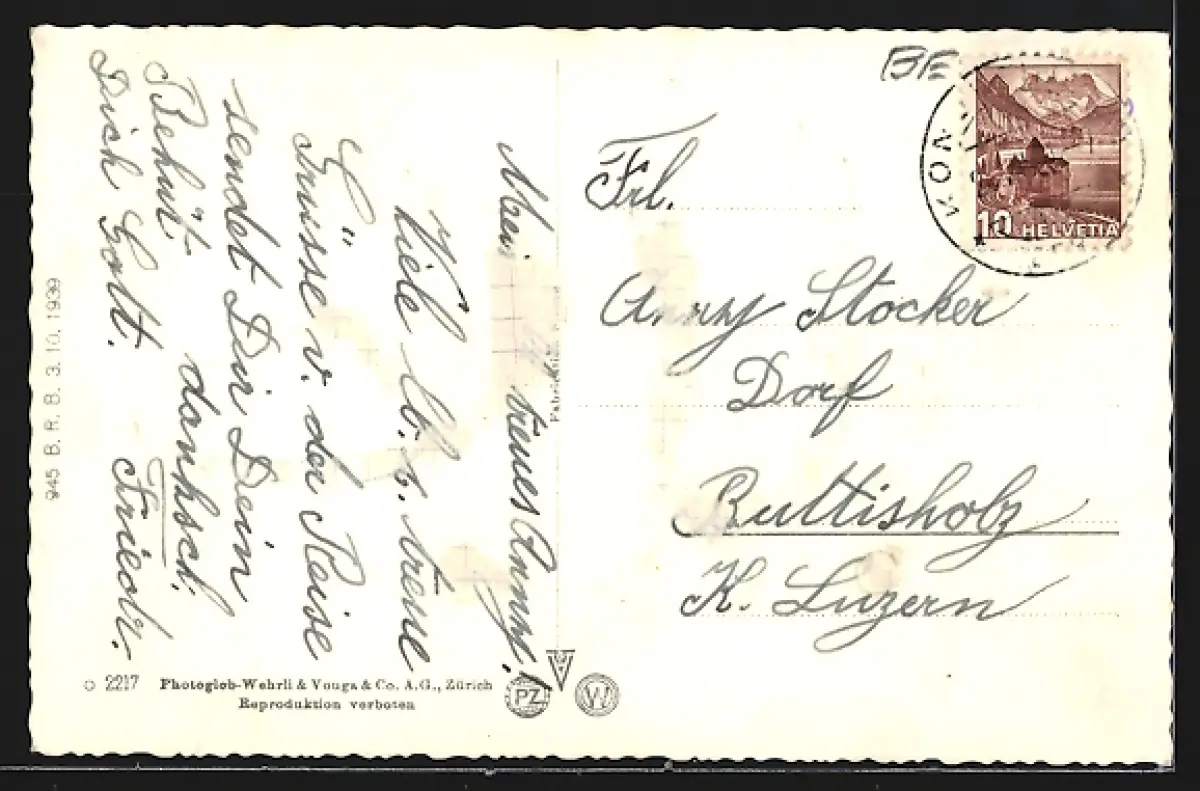 Mein treues Anny!
Viele lb. u. treue
Grüsse v. der Reise
sendet Dir Dein
dankb.
Behüt
Dich Gott. Friedr.
945 B. R. B. 3. 10. 1939
2217 Photoglob-Wehrli & Vouga & Co. A.G., Zürich
Reproduktion verboten
PZ W
BE
KON
10 HELVETIA
Frl.
Anny Stocker
Dorf
Buttisholz
K. Luzern